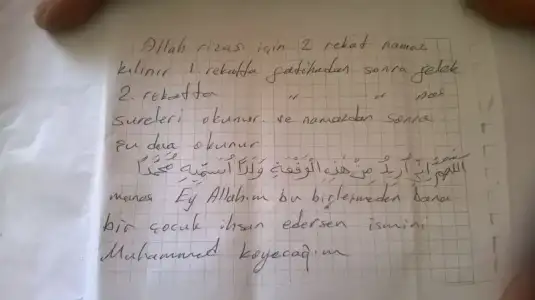 Allah rızası için 2 rekat namaz
kılınır 1. rekatta fatihadan sonra felak
2. rekatta " " nas
sureleri okunur. ve namazdan sonra
şu dua okunur
اللهم إني أريد من هذه الوقعة ولدا أسميه محمدا
manası Ey Allahım bu birleşmeden bana
bir çocuk ihsan edersen ismini
Muhammed koyacağım